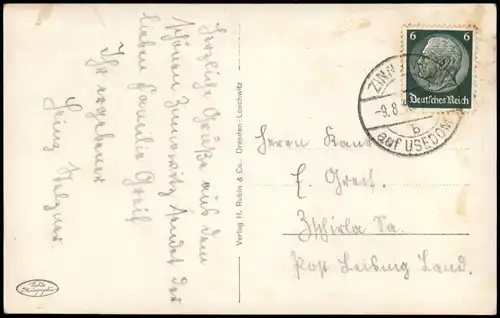 Herzliche Grüße aus dem
schönen Zinnowitz sendet der
lieben Familie Greif
Ihr ergebener
Heinz
Verlag H. Rubin & Co., Dresden-Loschwitz
6 6
Deutsches Reich
ZINN
-9.8.
b
auf USEDOM
Herrn
E. Greif.
Zschirla Sa.
Post Leisnig Land.
Echte
Photographie